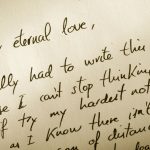 eternal love,
had to write this
I can't stop thinking
if try my hardest not
as I know there isn't
of distance